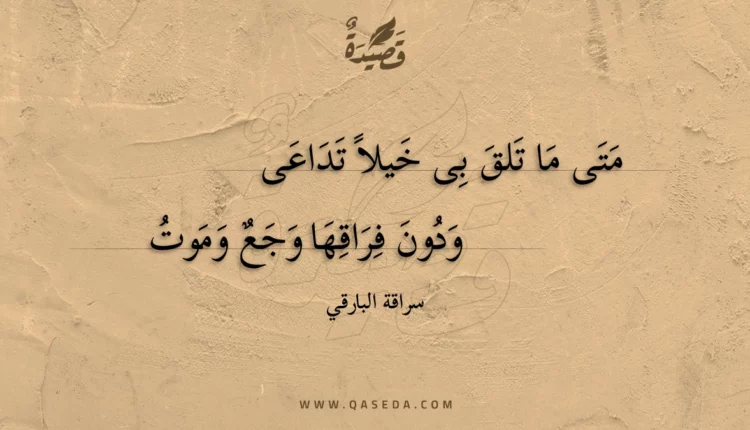 قَصِيْدَةٌ
مَتَى مَا تَلقَ بِى خَيلاً تَدَاعَى
وَدُونَ فِرَاقِهَا وَجَعٌ وَمَوتُ
سراقة البارقي
WWW.QASEDA.COM